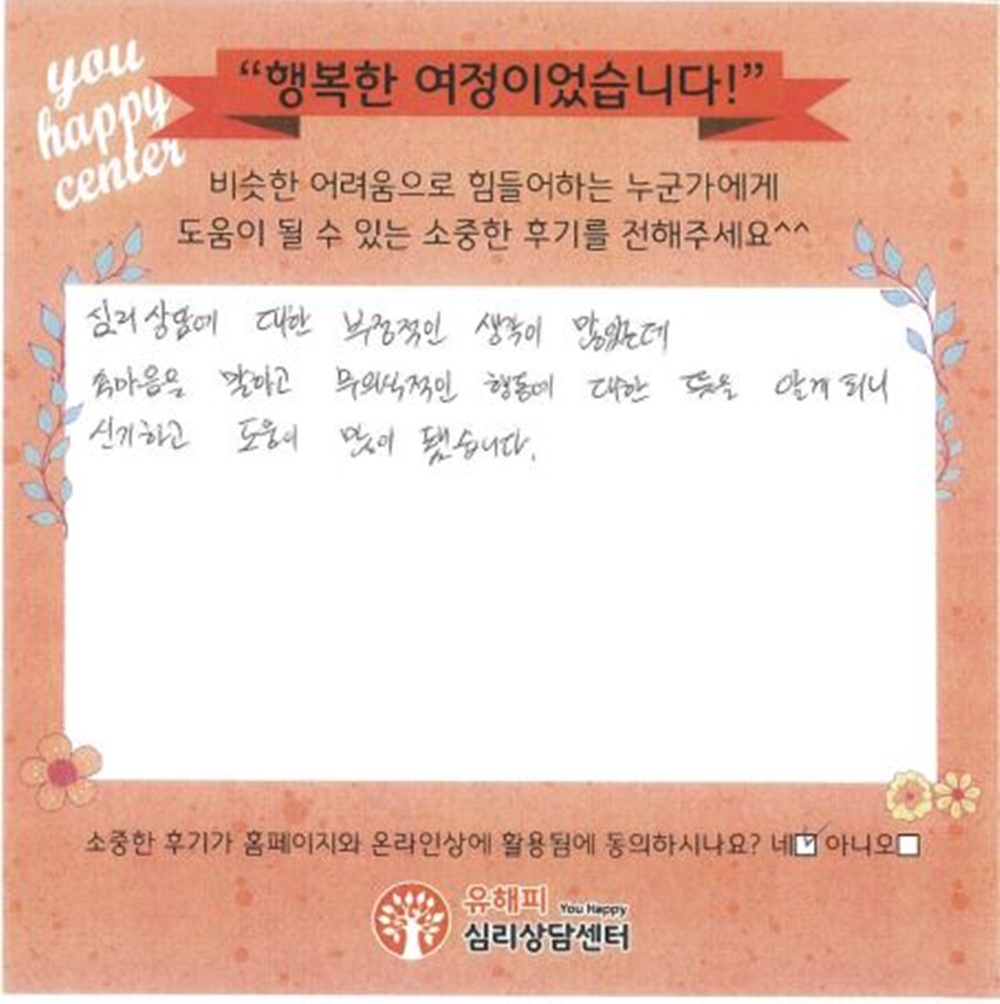 you
happy
center
“행복한 여정이었습니다!”
비슷한 어려움으로 힘들어하는 누군가에게
도움이 될 수 있는 소중한 후기를 전해주세요^^
심리상담에 대한 부정적인 생각이 많았는데
속마음을 말하고 무의식적인 행동에 대한 뜻을 알게 되니
신기하고 도움이 많이 됐습니다.
소중한 후기가 홈페이지와 온라인상에 활용됨에 동의하시나요? 네☑ 아니오☐
유해피 You Happy
심리상담센터